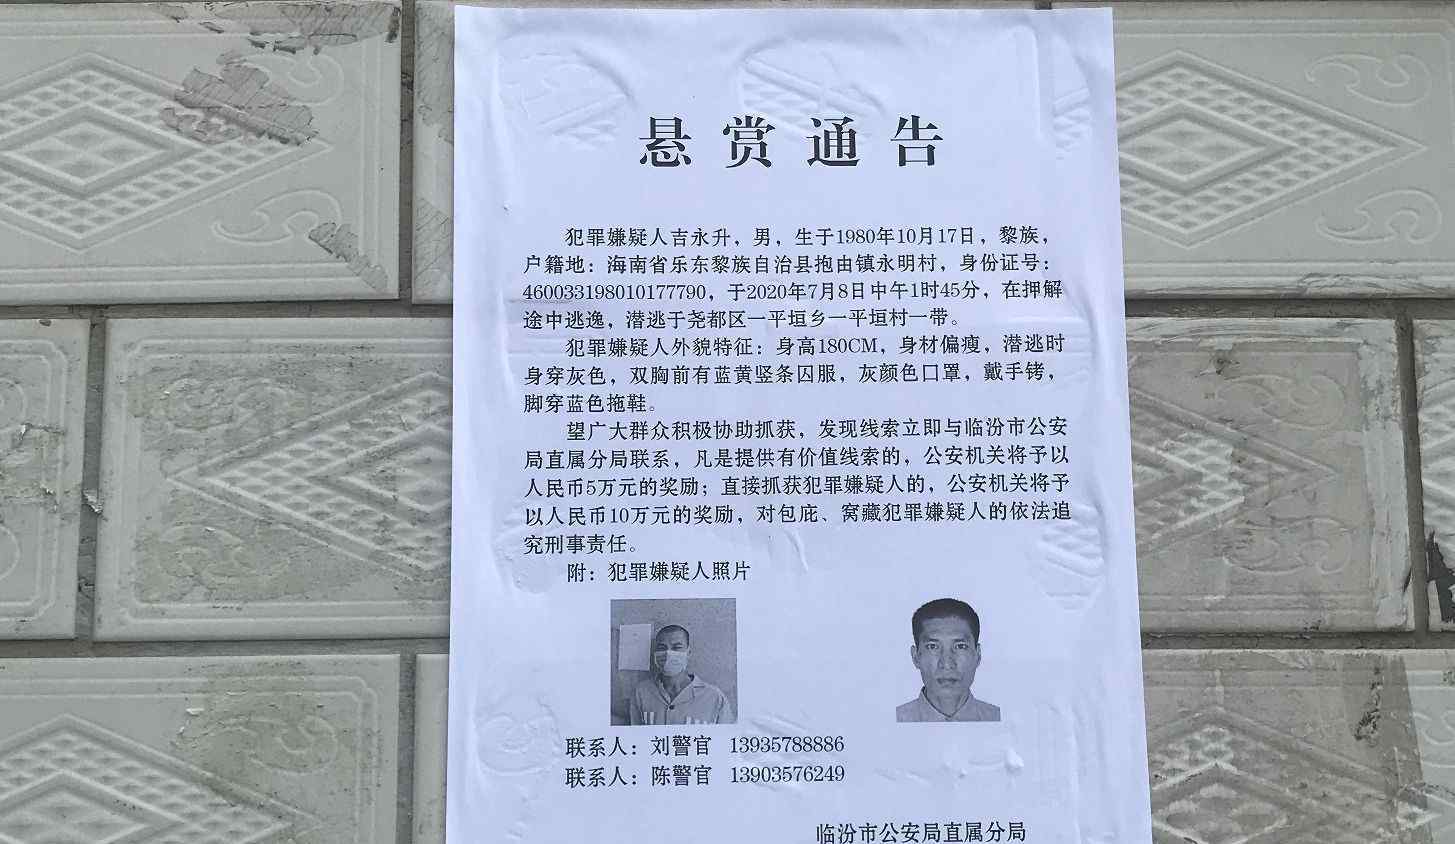 悬赏通告
犯罪嫌疑人吉永升，男，生于1980年10月17日，黎族，
户籍地：海南省乐东黎族自治县抱由镇永明村，身份证号：
460033198010177790，于2020年7月8日中午1时45分，在押解
途中逃逸，潜逃于尧都区一平垣乡一平垣村一带。
犯罪嫌疑人外貌特征：身高180CM，身材偏瘦，潜逃时
身穿灰色，双胸前有蓝黄竖条囚服，灰颜色口罩，戴手铐，
脚穿蓝色拖鞋。
望广大群众积极协助抓获，发现线索立即与临汾市公安
局直属分局联系，凡是提供有价值线索的，公安机关将予以
人民币5万元的奖励；直接抓获犯罪嫌疑人的，公安机关将予
以人民币10万元的奖励，对包庇、窝藏犯罪嫌疑人的依法追
究刑事责任。
附：犯罪嫌疑人照片
联系人：刘警官 13935788886
联系人：陈警官 13903576249
临汾市公安局直属分局